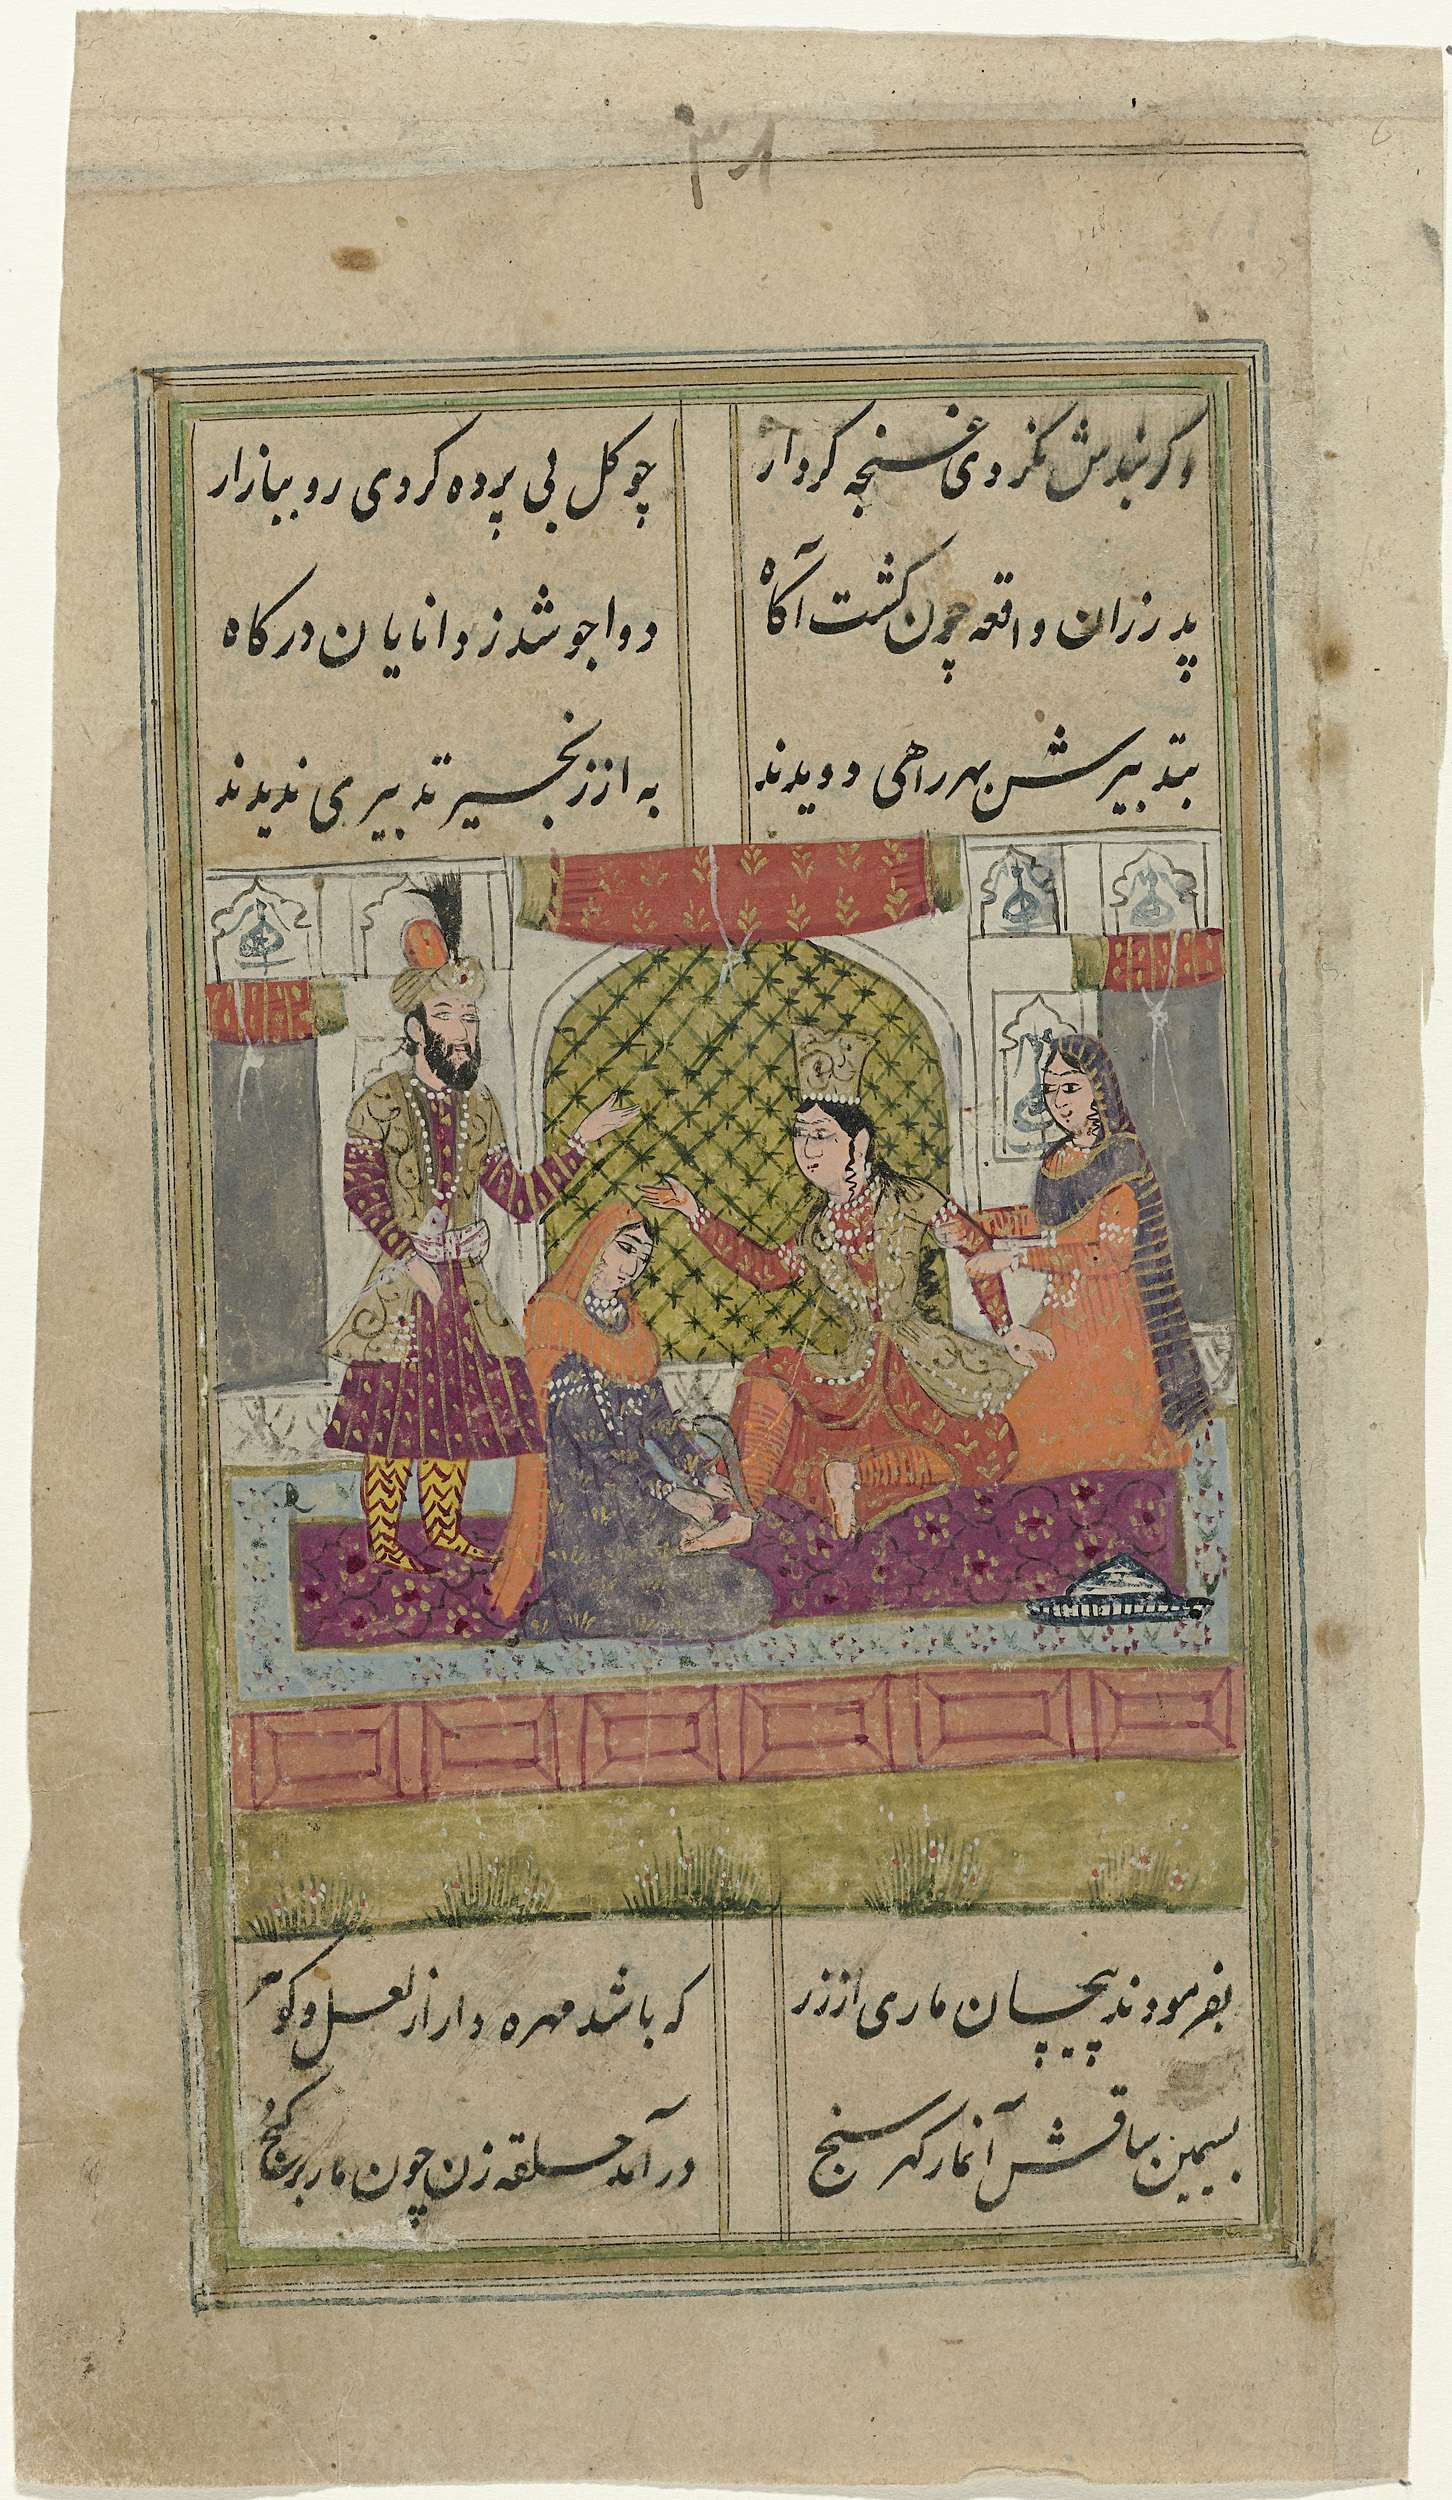 ۳۸
وگر بندش نکردی غنچه کردار
چو کل بی پرده کردی رو ببازار
پدر زان واقعه چون کشت آکاه
دوا جو شد ز دانایان درکاه
بتدبیرش بهر راهی دویدند
به از زنجیر تدبیری ندیدند
بفرمودند پیچان ماری از زر
که باشد مهره دار از لعل و کوهر
بسیمین ساقش آنمار کهر سنج
درآمد حلقه زن چون مار بر کنج